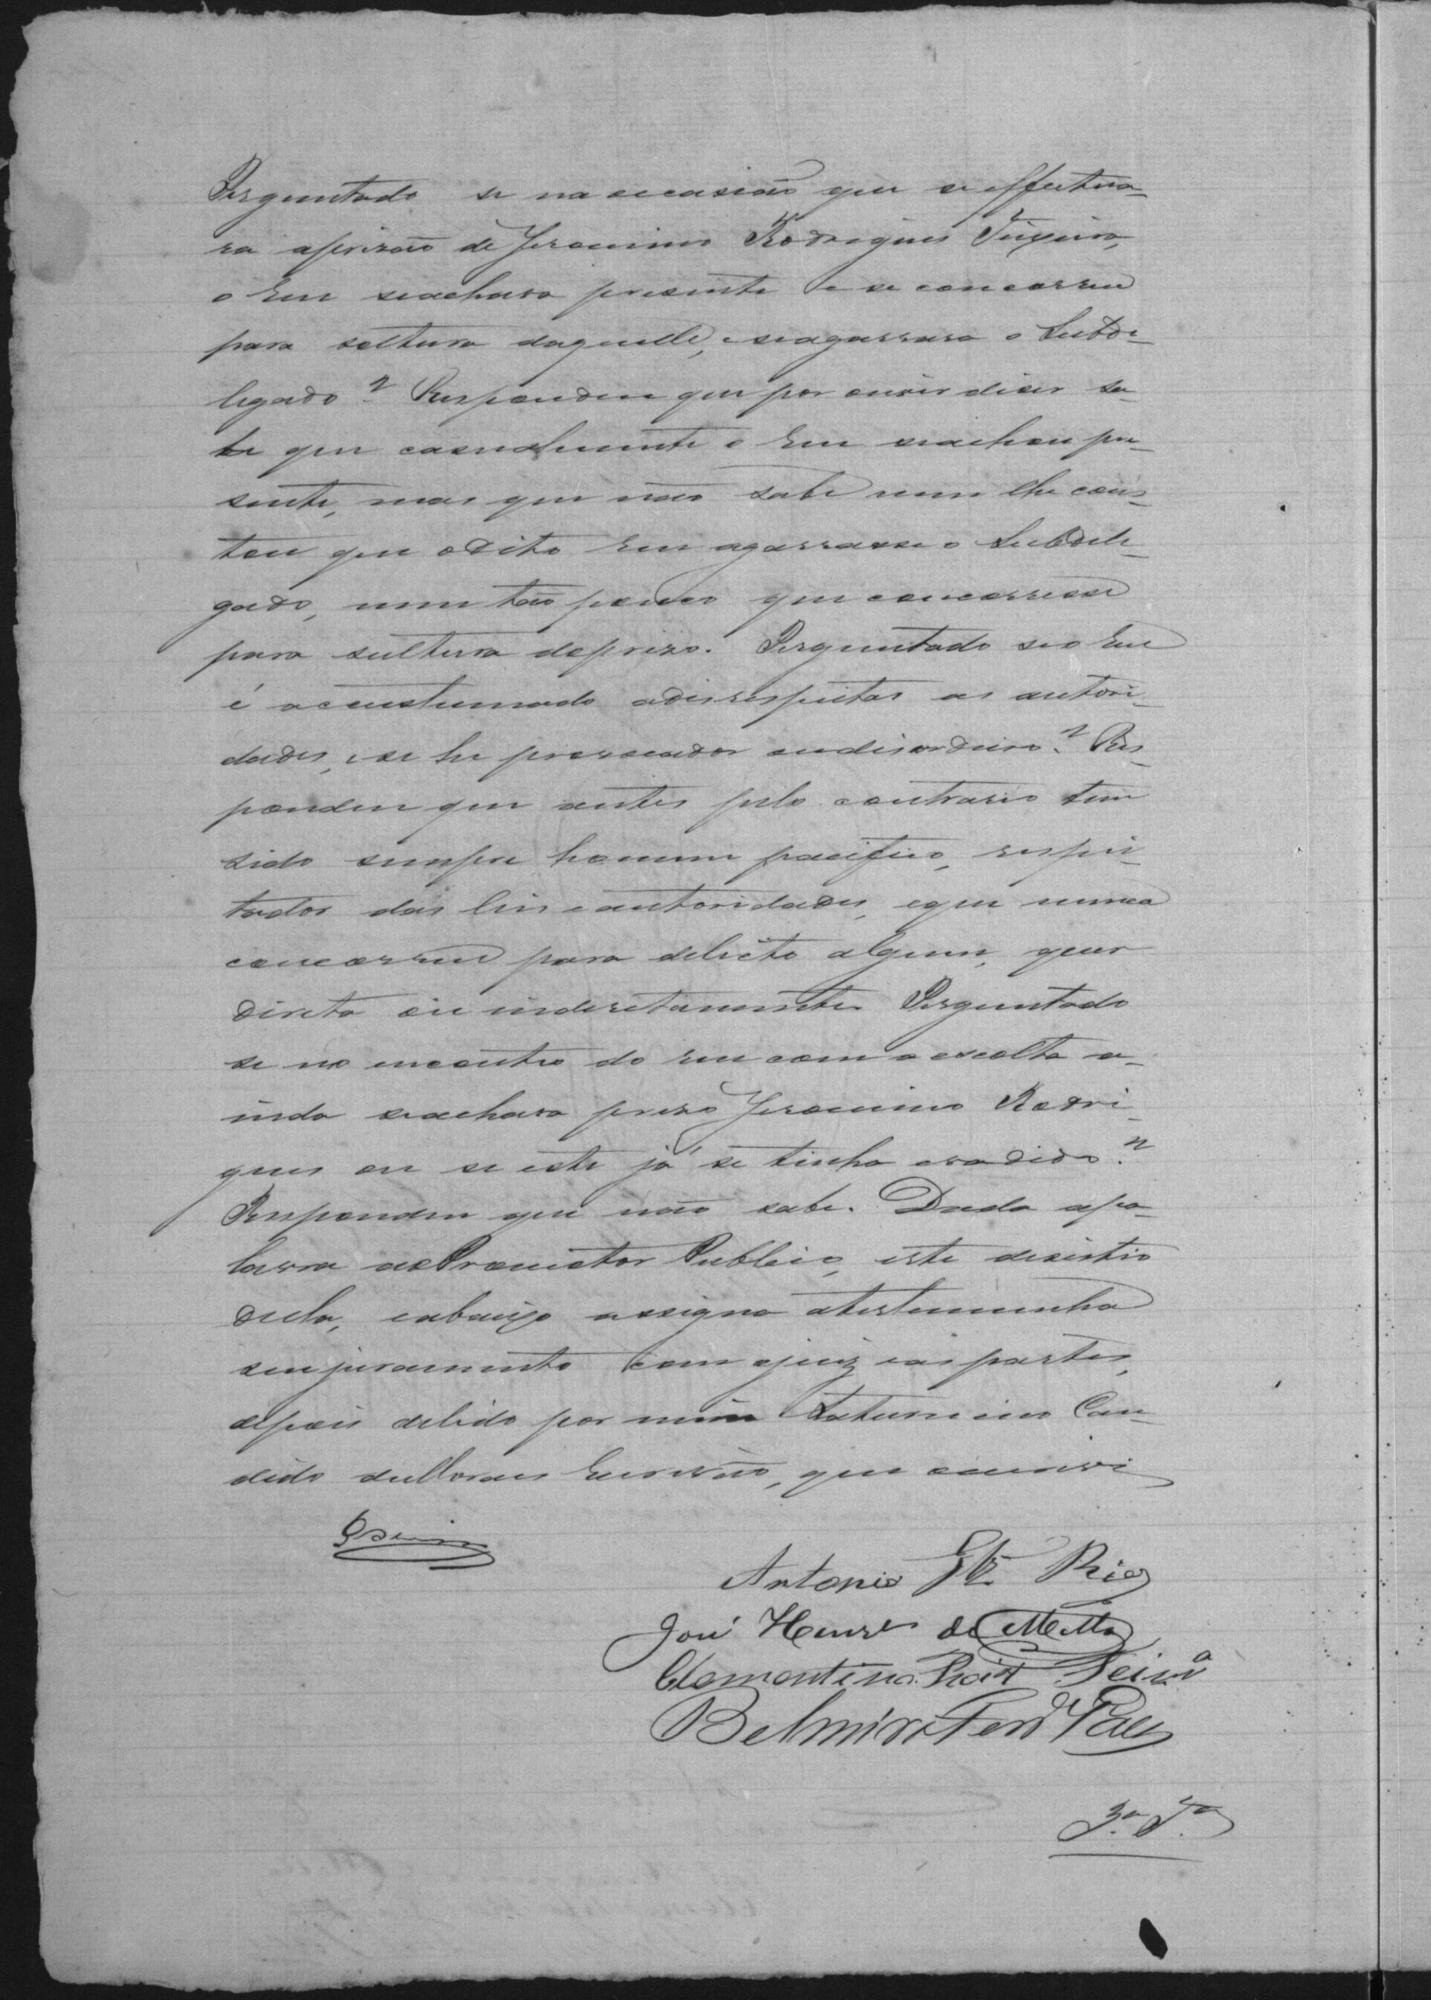 Perguntado se na occasião que se effectua-
ra aprizão de Jeronimo Rodrigues Teixeira,
o Reu seachava presente e se concorreu
para soltura daquelle, eseagarrara o Subde-
legado? Respondeu que por ouvir dizer sa-
be que casualmente o Reu seachou pre-
sente, mas que não sabe nem lhe cons-
tou que odito Reu agarrasse o Subdele-
gado, nem tão pouco que concorresse
para sultura doprezo. Perguntado seo Reu
é acustumado adisrespeitar as autori-
dades, ese he provocador oudisordeiro? Res-
pondeu que antes pelo contrario tem
sido sempre homem pacifico, respei-
tador das leis eautoridades, eque nunca
concorreu para delicto algum, quer
direta ou inderetamente. Perguntado
se no encontro do reu com a escolta a-
inda seachava prezo Jeronimo Rodri-
gues ou se este já se tinha evadido?
Respondeu que não sabe. Dada apa-
lavra aoPromotor Publico, este desistio
della, eabaixo assigna atestemunha
seu juramento com ojuiz eas partes,
depois delido por mim Saturnino Can-
dido deMoraes Escrivão, que escrevi
Antonio Rios
José Henre de Mello
Clementino Teixra
Belmiro Ferde Paes
3ª Tª